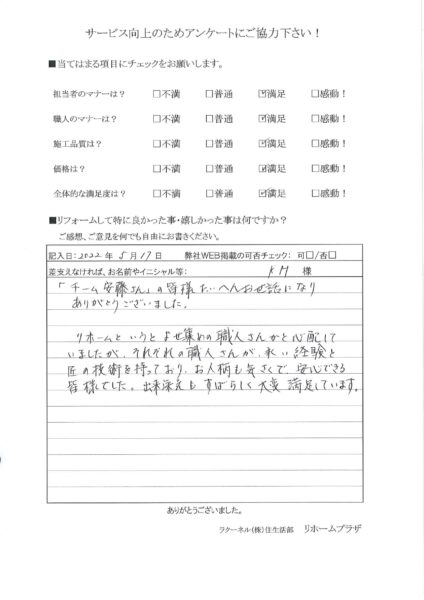 サービス向上のためアンケートにご協力下さい！
■当てはまる項目にチェックをお願いします。
担当者のマナーは？ □不満 □普通 ☑満足 □感動！
職人のマナーは？ □不満 □普通 ☑満足 □感動！
施工品質は？ □不満 □普通 ☑満足 □感動！
価格は？ □不満 □普通 ☑満足 □感動！
全体的な満足度は？ □不満 □普通 ☑満足 □感動！
■リフォームして特に良かった事・嬉しかった事は何ですか？
ご感想、ご意見を何でも自由にお書きください。
記入日：2022年 5月17日 弊社WEB掲載の可否チェック： 可□/否□
差支えなければ、お名前やイニシャル等： KM 様
「チーム安藤さん」の皆様たいへんお世話になり
ありがとうございました。
リホームというとよせ集めの職人さんかと心配して
いましたが、それぞれの職人さんが、永い経験と
匠の技術を持っており、お人柄も気さくで、安心できる
皆様でした。出来栄えもすばらしく大変満足しています。
ありがとうございました。
ラクーネル(株)住生活部 リホームプラザ